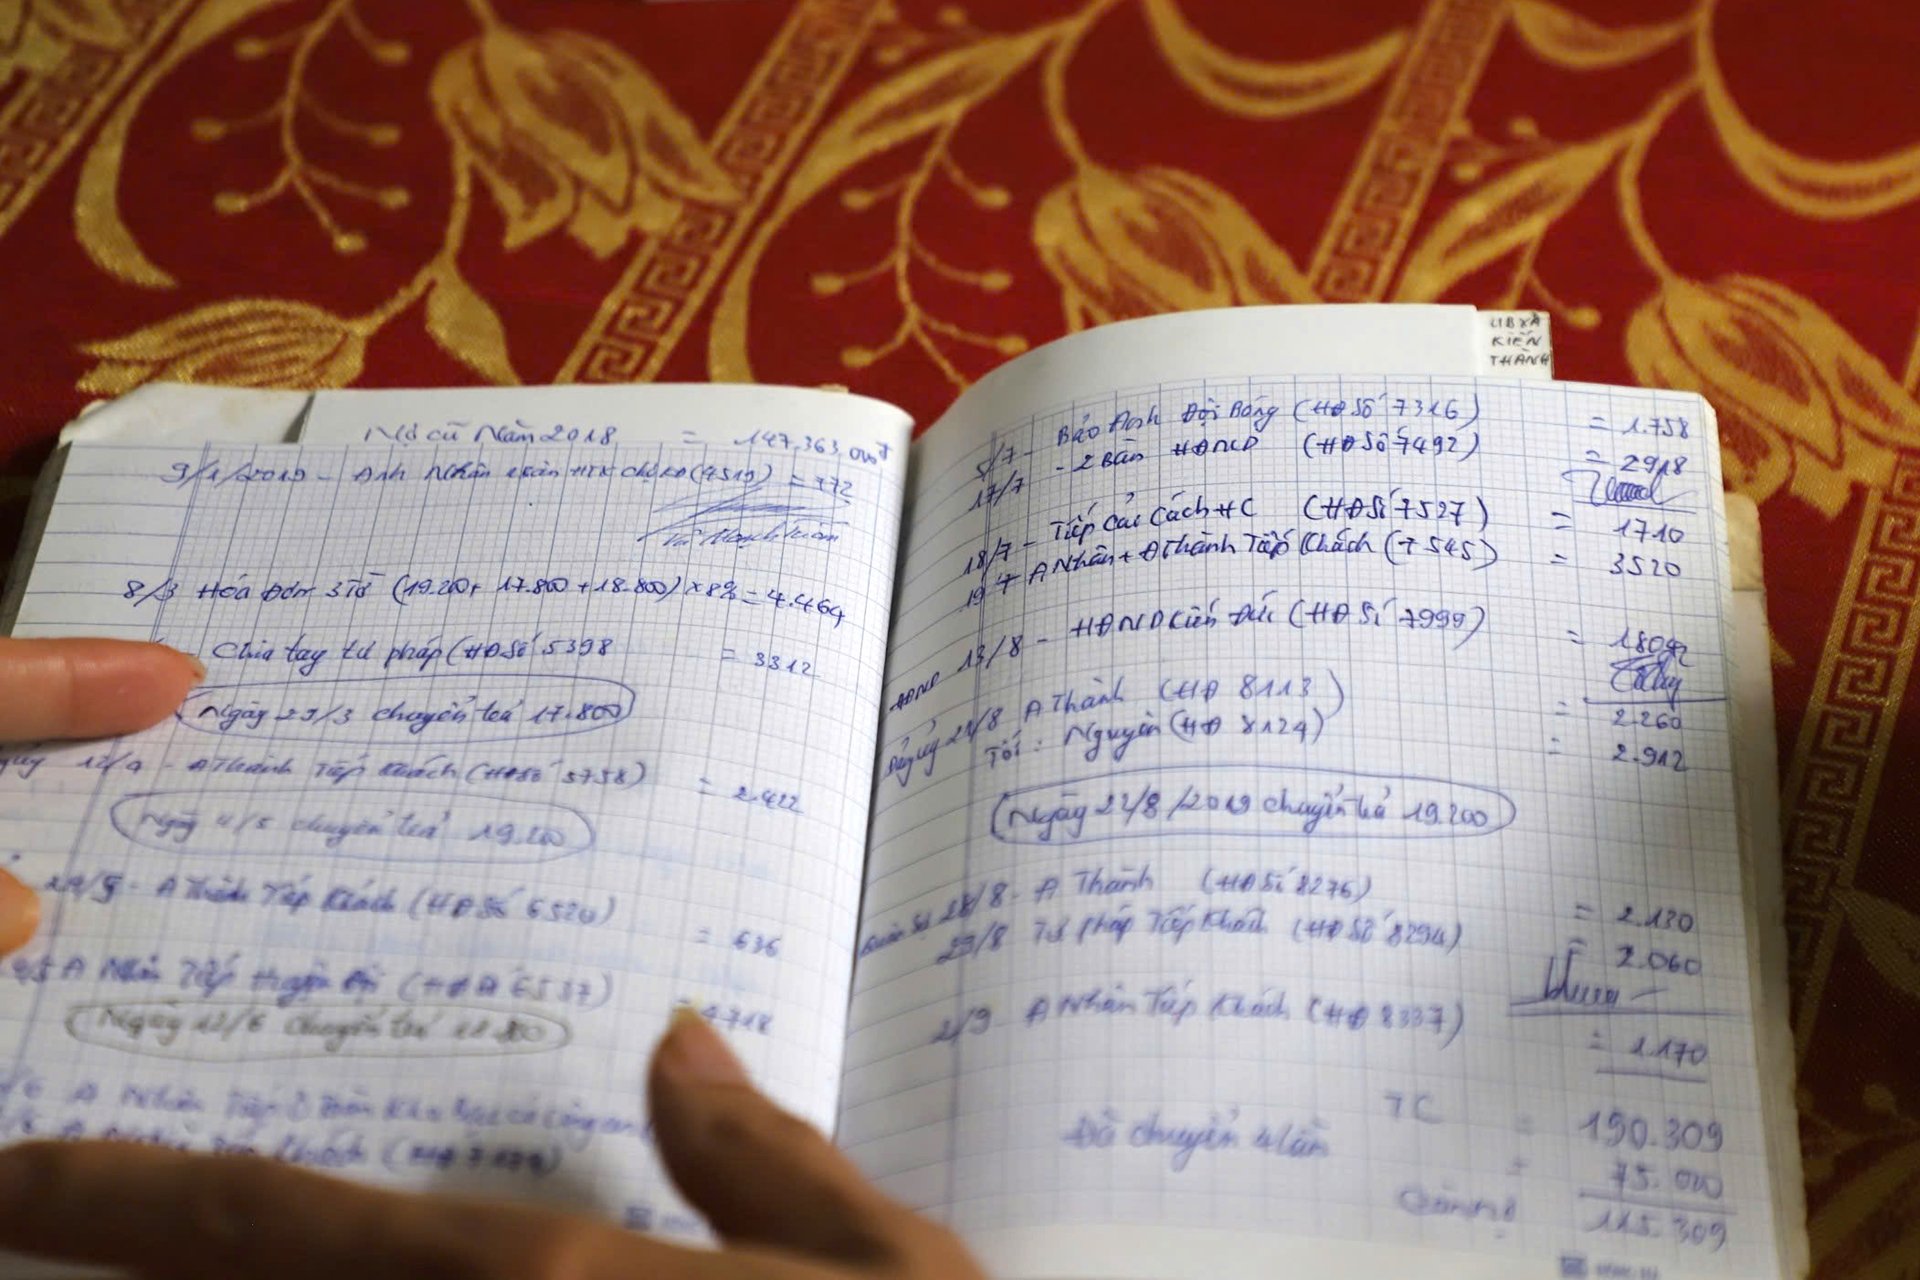 Nợ cũ Năm 2018 = 147.363.000đ
9/1/2019 - Anh Nhân (4519) = 772
8/3 Hóa Đơn 3 Tờ (19.200 + 17.800 + 18.800) x 8% = 4.464
- Chia tay tư pháp (HĐ Số 5398 = 3312
Ngày 29/3 chuyển trả 17.800
12/4 - A Thành Tiếp Khách (HĐ Số 5758) = 2.422
Ngày 4/5 chuyển trả 19.200
29/5 - A Thành Tiếp Khách (HĐ Số 6520) = 636
A Nhân Tiếp (HĐ 6537) = 4718
Ngày 12/6 chuyển trả 18.800
A Nhân Tiếp
Khách
UB XÃ
KIẾN
THÀNH
5/7 - Bảo Anh Đội Bóng (HĐ Số 7316) = 1.758
17/7 - 2 Bàn HĐND (HĐ Số 7492) = 2918
18/7 - Tiếp Cải Cách HC (HĐ Số 7527) = 1710
19/7 A Nhân + A Thành Tiếp Khách (7545) = 3520
HĐND 13/8 - HĐND Kiến Đức (HĐ Số 7999) = 18092
Đảng ủy 21/8 A Thành (HĐ 8113) = 2.260
Tối: Nguyên (HĐ 8124) = 2.912
Ngày 22/8/2019 chuyển trả 19.200
28/8 - A Thành (HĐ Số 8276) = 2.130
29/8 Tư pháp Tiếp Khách (HĐ Số 8294) = 2.060
2/9 A Nhân Tiếp Khách (HĐ 8337) = 1.170
TC = 190.309
Đã chuyển 4 lần = 75.000
Còn nợ 115.309